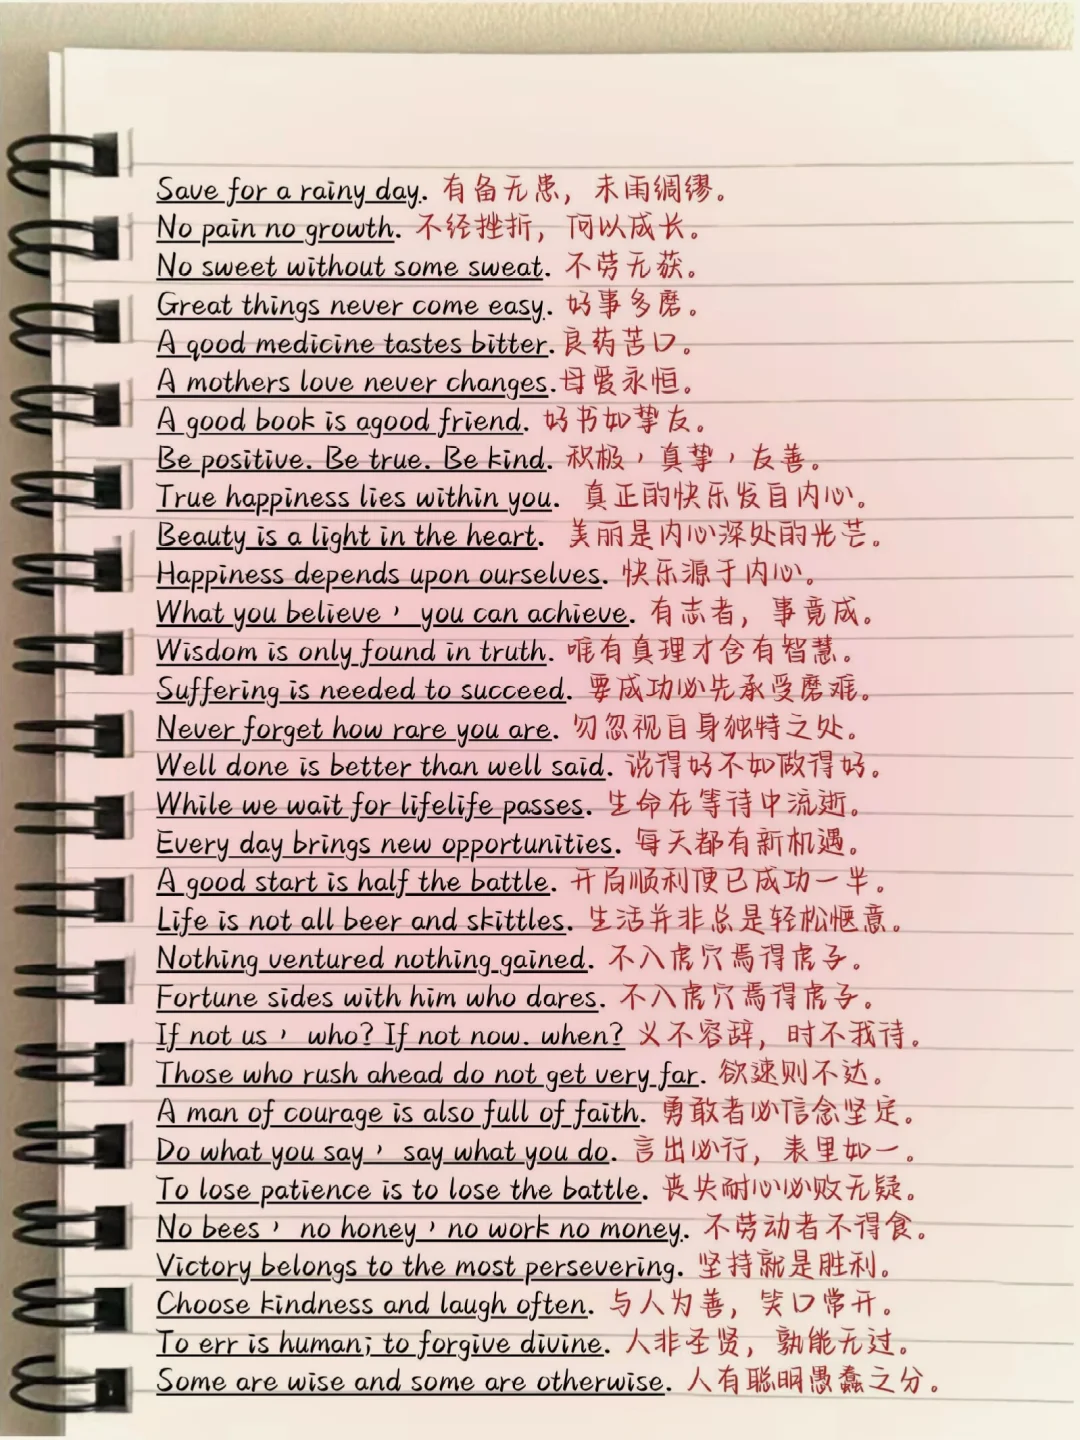 Save for a rainy day. 有备无患，未雨绸缪。
No pain no growth. 不经挫折，何以成长。
No sweet without some sweat. 不劳无获。
Great things never come easy. 好事多磨。
A good medicine tastes bitter. 良药苦口。
A mothers love never changes. 母爱永恒。
A good book is agood friend. 好书如挚友。
Be positive. Be true. Be kind. 积极，真挚，友善。
True happiness lies within you. 真正的快乐发自内心。
Beauty is a light in the heart. 美丽是内心深处的光芒。
Happiness depends upon ourselves. 快乐源于内心。
What you believe， you can achieve. 有志者，事竟成。
Wisdom is only found in truth. 唯有真理才含有智慧。
Suffering is needed to succeed. 要成功必先承受磨难。
Never forget how rare you are. 勿忽视自身独特之处。
Well done is better than well said. 说得好不如做得好。
While we wait for lifelife passes. 生命在等待中流逝。
Every day brings new opportunities. 每天都有新机遇。
A good start is half the battle. 开局顺利便已成功一半。
Life is not all beer and skittles. 生活并非总是轻松惬意。
Nothing ventured nothing gained. 不入虎穴焉得虎子。
Fortune sides with him who dares. 不入虎穴焉得虎子。
If not us， who? If not now. when? 义不容辞，时不我待。
Those who rush ahead do not get very far. 欲速则不达。
A man of courage is also full of faith. 勇敢者必信念坚定。
Do what you say， say what you do. 言出必行，表里如一。
To lose patience is to lose the battle. 丧失耐心必败无疑。
No bees， no honey，no work no money. 不劳动者不得食。
Victory belongs to the most persevering. 坚持就是胜利。
Choose kindness and laugh often. 与人为善，笑口常开。
To err is human; to forgive divine. 人非圣贤，孰能无过。
Some are wise and some are otherwise. 人有聪明愚蠢之分。